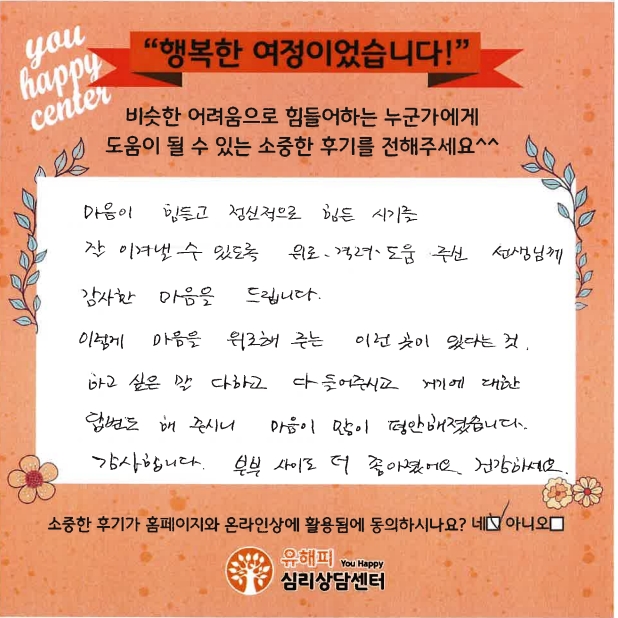 you
happy
center
“행복한 여정이었습니다!”
비슷한 어려움으로 힘들어하는 누군가에게
도움이 될 수 있는 소중한 후기를 전해주세요^^
마음이 힘들고 정신적으로 힘든 시기를
잘 이겨낼 수 있도록 위로、격려、도움 주신 선생님께
감사한 마음을 드립니다.
이렇게 마음을 위로해 주는 이런 곳이 있다는 것.
하고 싶은 말 다하고 다 들어주시고 거기에 대한
답변도 해 주시니 마음이 많이 평안해졌습니다.
감사합니다. 부부 사이도 더 좋아졌어요. 건강하세요.
소중한 후기가 홈페이지와 온라인상에 활용됨에 동의하시나요? 네☑ 아니오☐
유해피 You Happy
심리상담센터